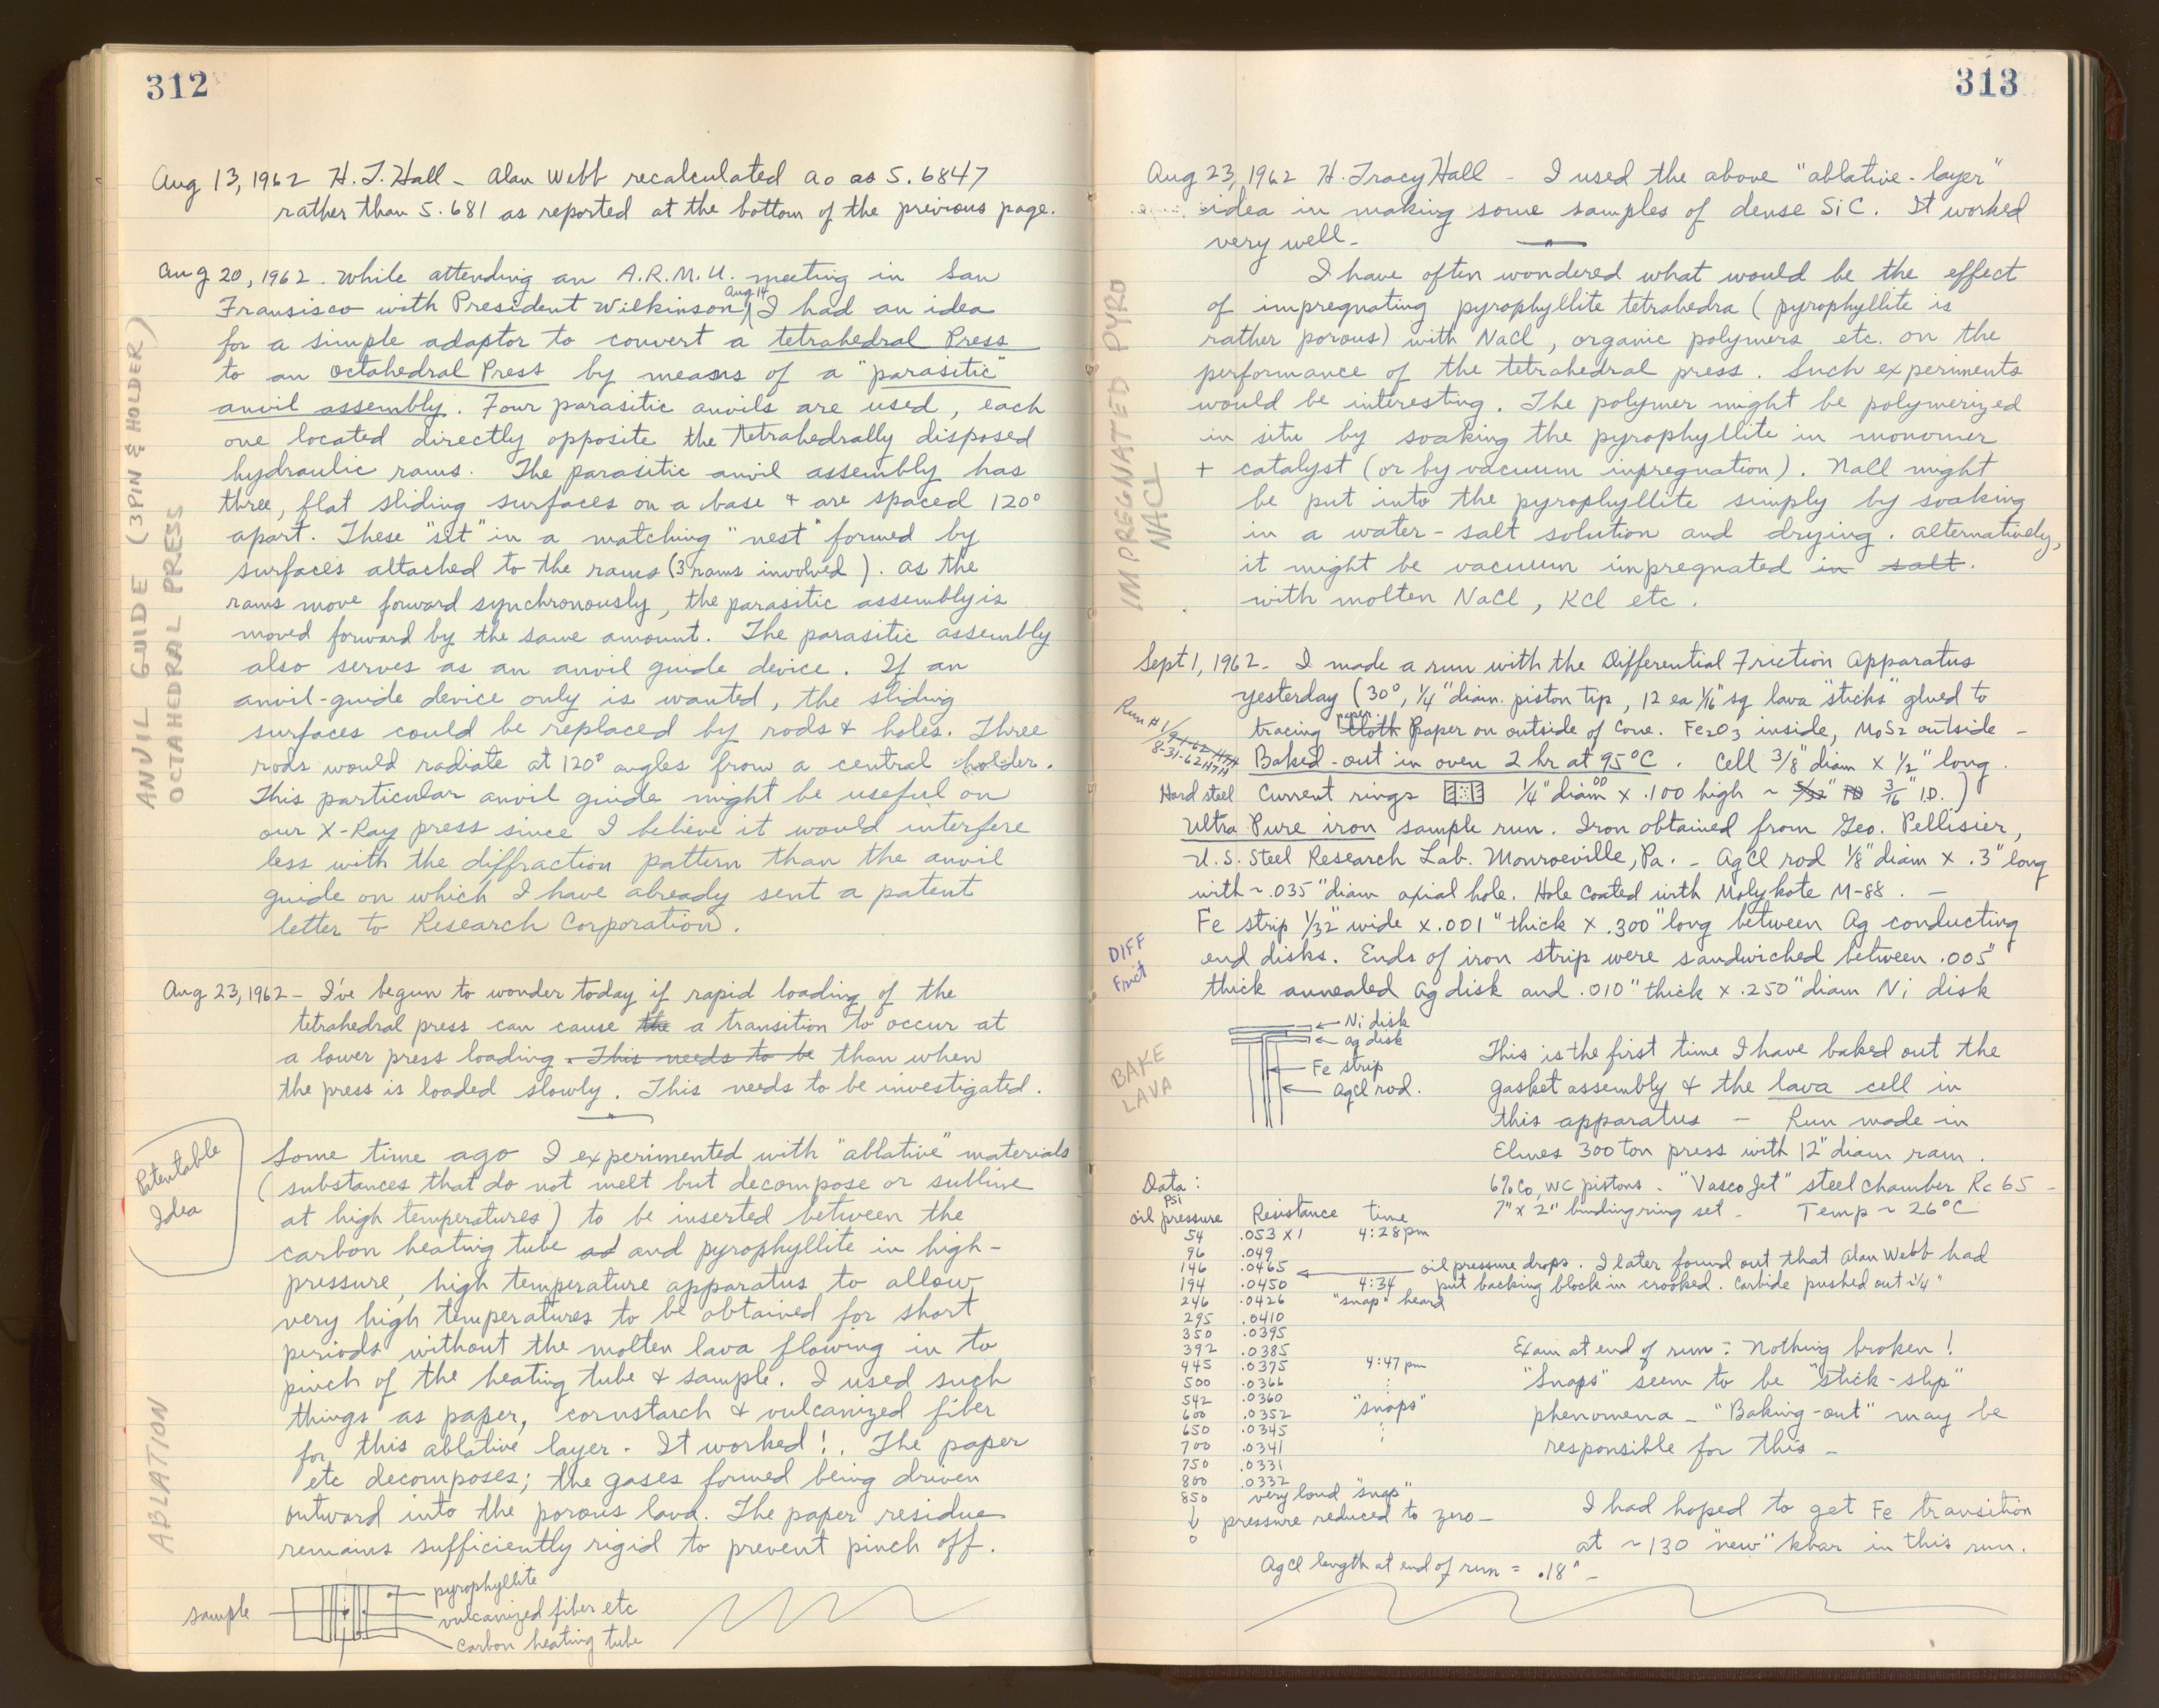 312
Aug 13, 1962 H. T. Hall - Alan Webb recalculated ao as 5.6847
rather than 5.681 as reported at the bottom of the previous page.
Aug 20, 1962. While attending an A.R.M.U. meeting in San
Fransisco with President Wilkinson Aug 14 I had an idea
for a simple adaptor to convert a tetrahedral Press
to an octahedral Press by means of a "parasitic"
anvil assembly. Four parasitic anvils are used, each
one located directly opposite the tetrahedrally disposed
hydraulic rams. The parasitic anvil assembly has
three, flat sliding surfaces on a base + are spaced 120°
apart. These "sit" in a matching "nest" formed by
surfaces attached to the rams (3 rams involved). As the
rams move forward synchronously, the parasitic assembly is
moved forward by the same amount. The parasitic assembly
also serves as an anvil guide device. If an
anvil-guide device only is wanted, the sliding
surfaces could be replaced by rods & holes. Three
rods would radiate at 120° angles from a central holder.
This particular anvil guide might be useful on
our X-Ray press since I believe it would interfere
less with the diffraction pattern than the anvil
guide on which I have already sent a patent
letter to Research Corporation.
ANVIL GUIDE (3PIN & HOLDER)
OCTAHEDRAL PRESS
Aug 23, 1962 - I've begun to wonder today if rapid loading of the
tetrahedral press can cause the a transition to occur at
a lower press loading. This needs to be than when
the press is loaded slowly. This needs to be investigated.
Patentable
Idea
Some time ago I experimented with "ablative" materials
(substances that do not melt but decompose or sublime
at high temperatures) to be inserted between the
carbon heating tube ad and pyrophyllite in high-
pressure, high temperature apparatus to allow
very high temperatures to be obtained for short
periods without the molten lava flowing in to
pinch of the heating tube & sample. I used such
things as paper, cornstarch & vulcanized fiber
for this ablative layer. It worked!. The paper
etc decomposes; the gases formed being driven
outward into the porous lava. The paper residue
remains sufficiently rigid to prevent pinch off.
ABLATION
sample
pyrophyllite
vulcanized fiber etc
carbon heating tube
313
Aug 23, 1962 H. Tracy Hall - I used the above "ablative-layer"
idea in making some samples of dense SiC. It worked
very well -
I have often wondered what would be the effect
of impregnating pyrophyllite tetrahedra (pyrophyllite is
rather porous) with NaCl, organic polymers etc. on the
performance of the tetrahedral press. Such experiments
would be interesting. The polymer might be polymerized
in situ by soaking the pyrophyllite in monomer
+ catalyst (or by vacuum inpregnation). NaCl might
be put into the pyrophyllite simply by soaking
in a water-salt solution and drying. Alternatively,
it might be vacuum impregnated in salt.
with molten NaCl, KCl etc.
IMPREGNATED PYRO
NACL
Sept 1, 1962 - I made a run with the Differential Friction Apparatus
yesterday (30°, 1/4" diam. piston tip, 12 ea 1/16" sq lava "sticks" glued to
tracing paper cloth paper on outside of Cone. Fe2O3 inside, MoS2 outside -
Run #1/9-1-62 HTH
8-31-62 HTH
Baked-out in oven 2 hr at 95°C. Cell 3/8" diam x 1/2" long.
Hard steel Current rings 1/4" diam OD x .100 high ~ 5/32" ID 3/16" I.D.)
Ultra Pure iron sample run. Iron obtained from Geo. Pellisier,
U.S. Steel Research Lab. Monroeville, Pa. - AgCl rod 1/8" diam x .3" long
with ~.035" diam axial hole. Hole coated with Molykote M-88. -
Fe strip 1/32" wide x .001" thick x .300" long between Ag conducting
end disks. Ends of iron strip were sandwiched between .005"
thick annealed Ag disk and .010" thick x .250" diam Ni disk
DIFF
Frict
BAKE
LAVA
Ni disk
Ag disk
Fe strip
AgCl rod.
This is the first time I have baked out the
gasket assembly & the lava cell in
this apparatus - Run made in
Elmes 300 ton press with 12" diam ram.
6% Co, WC pistons - "Vasco Jet" steel chamber Rc 65 -
7" x 2" binding ring set - Temp ~ 26°C
Data:
psi
oil pressure Resistance time
54 .053 x 1 4:28 pm
96 .049
146 .0465 oil pressure drops. I later found out that Alan Webb had
194 .0450 4:34 put backing block in crooked. Carbide pushed out ~1/4"
246 .0426 "snap" heard
295 .0410
350 .0395
392 .0385
445 .0375 4:47 pm
500 .0366
542 .0360
600 .0352 "snaps"
650 .0345
700 .0341
750 .0331
800 .0332
850 very loud "snap"
↓ pressure reduced to zero -
0
AgCl length at end of run = .18" -
Exam at end of run: Nothing broken!
"Snaps" seem to be "stick-slip"
phenomena - "Baking-out" may be
responsible for this -
I had hoped to get Fe transition
at ~130 "new" kbar in this run.